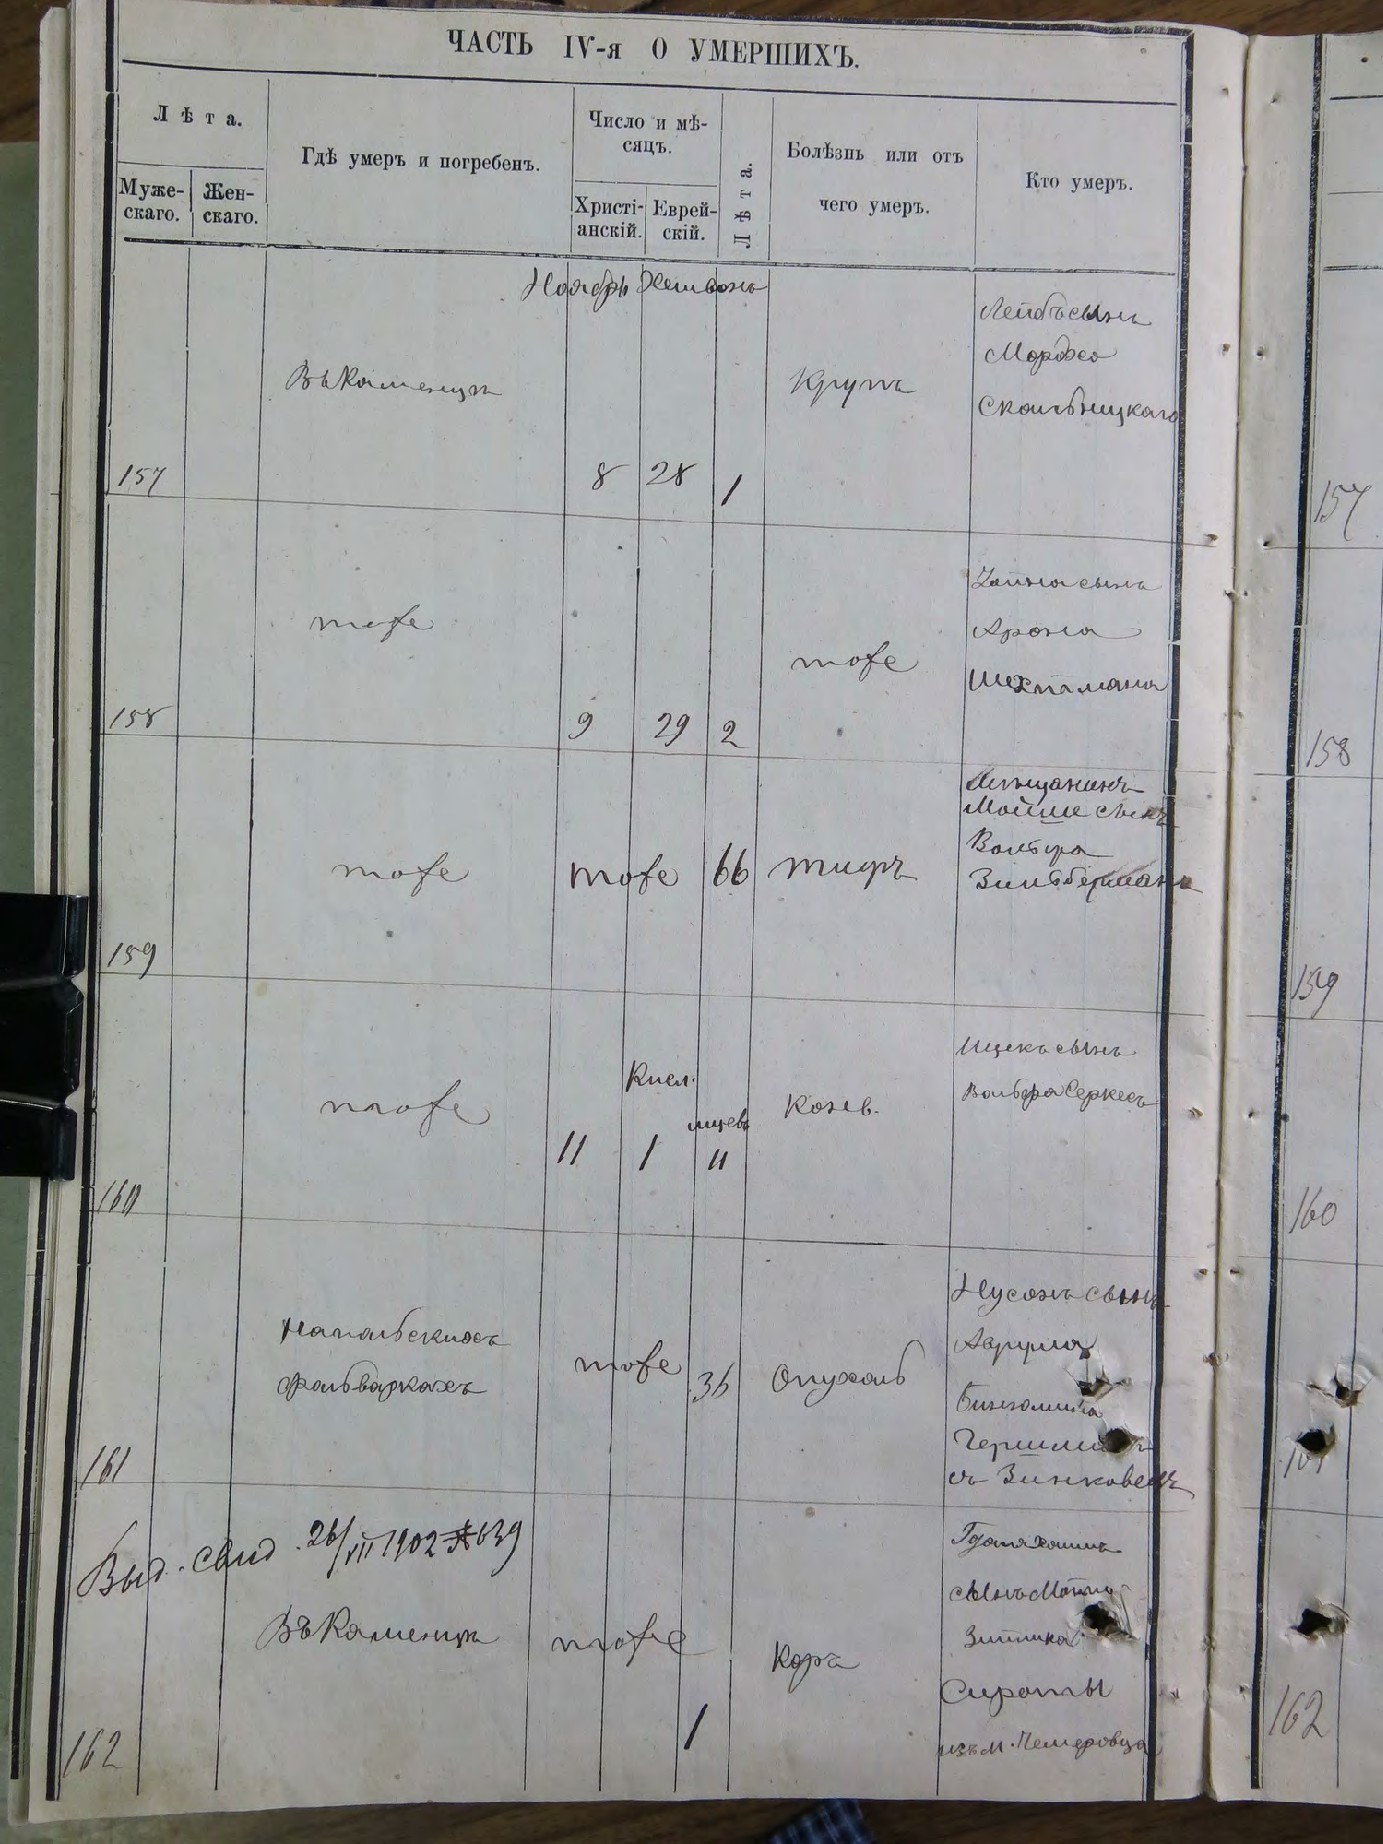 ЧАСТЬ IV-я О УМЕРШИХЪ.
Лѣта.
Мужескаго.
Женскаго.
Гдѣ умеръ и погребенъ.
Число и мѣсяцъ.
Христіанскій.
Еврейскій.
Лѣта.
Болѣзнь или отъ
чего умеръ.
Кто умеръ.
Ноябрь Хешвонъ
157
Въ Каменцѣ
8 28 1
Крупъ
Лейбъ сынъ
Мордко
157
158
тоже
9 29 2
тоже
сынъ
Арона
Шехтмана
158
159
тоже
тоже 66
тифъ
Мѣщанинъ
Мойше сынъ
Вольфа
Зильбермана
159
160
тоже
Кисл.
11 1
11
Ицекъ сынъ
Вольфа Серкесъ
160
161
фольваркахъ
тоже 36
Опухоль
Нусонъ сынъ
Аврума
съ Зинковецъ
162
Выд. свид. 26/VII 1902 № 639
Въ Каменцѣ
тоже
1
Корь
сынъ
Сироты
изъ м.
162